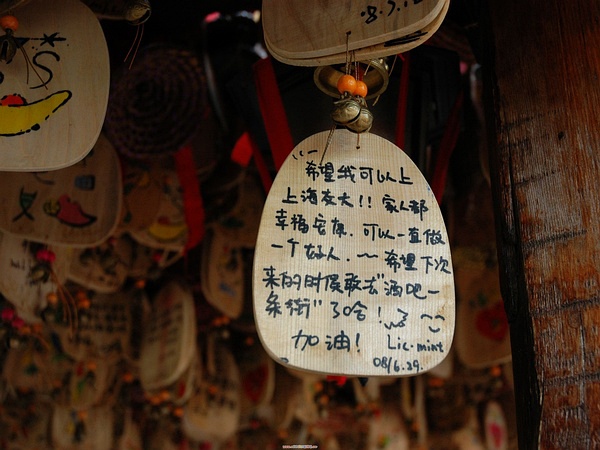 8.3.1
希望我可以上
上海交大!! 家人都
幸福安康. 可以一直做
一个好人. ~ 希望下次
来的时候敢去"酒吧一
条街"了哈!
加油! Lic-mint
08/6.29.